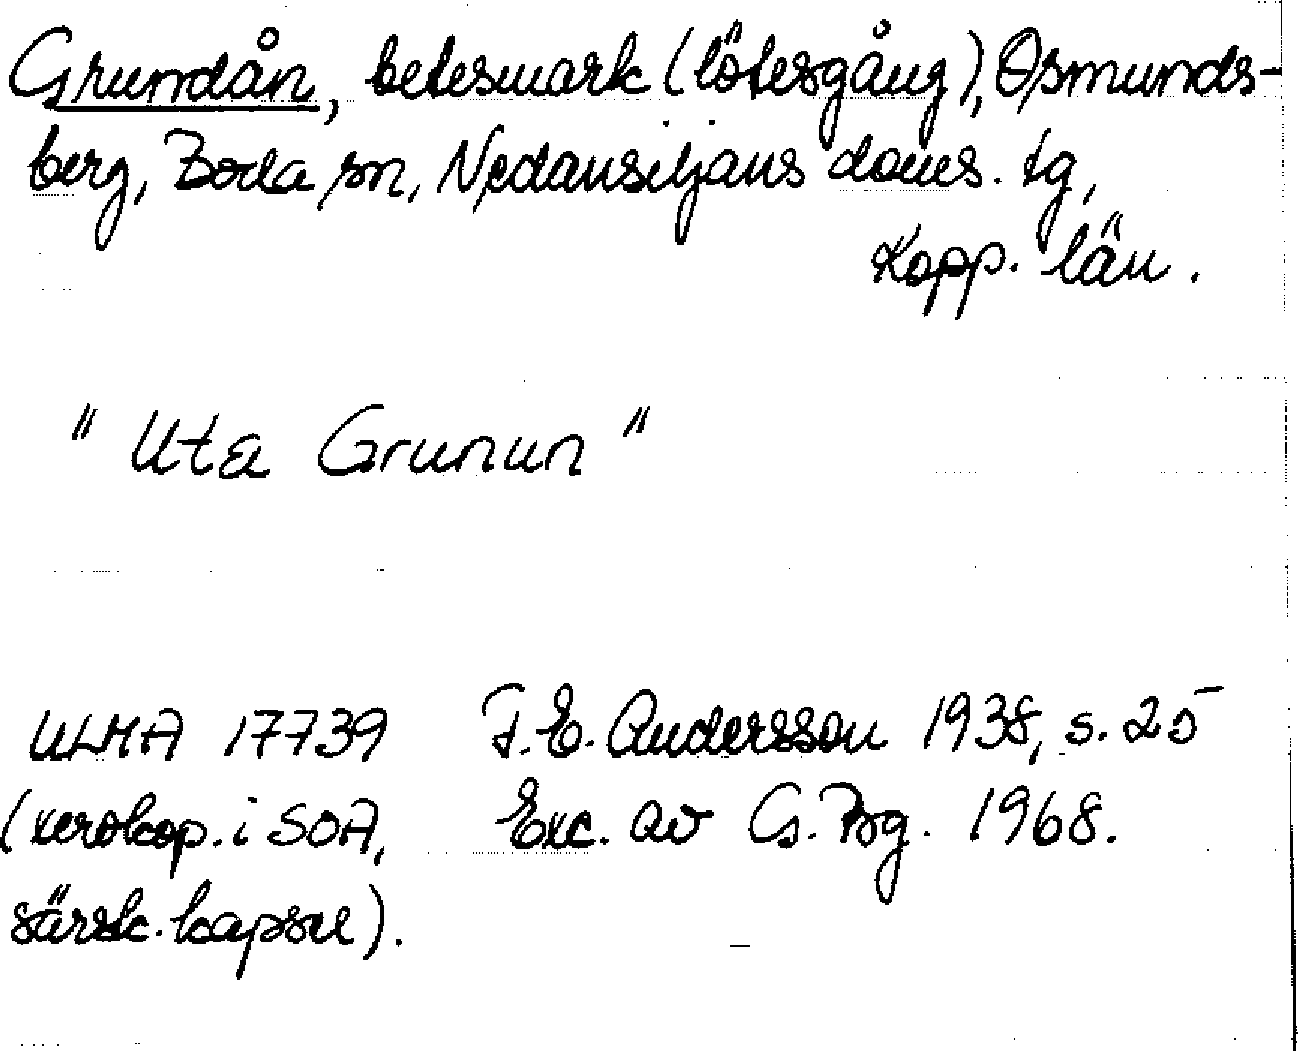 Grundån, betesmark (lötesgång), Osmunds-
berg, Boda sn, Nedansiljans doms. tg,
Kopp. län.
" Uta Grunun "
ULMA 17739 F.E. Andersson 1938, s. 25
(xerokop. i SOA, Exc. av G. Bg. 1968.
särsk. kapsel).